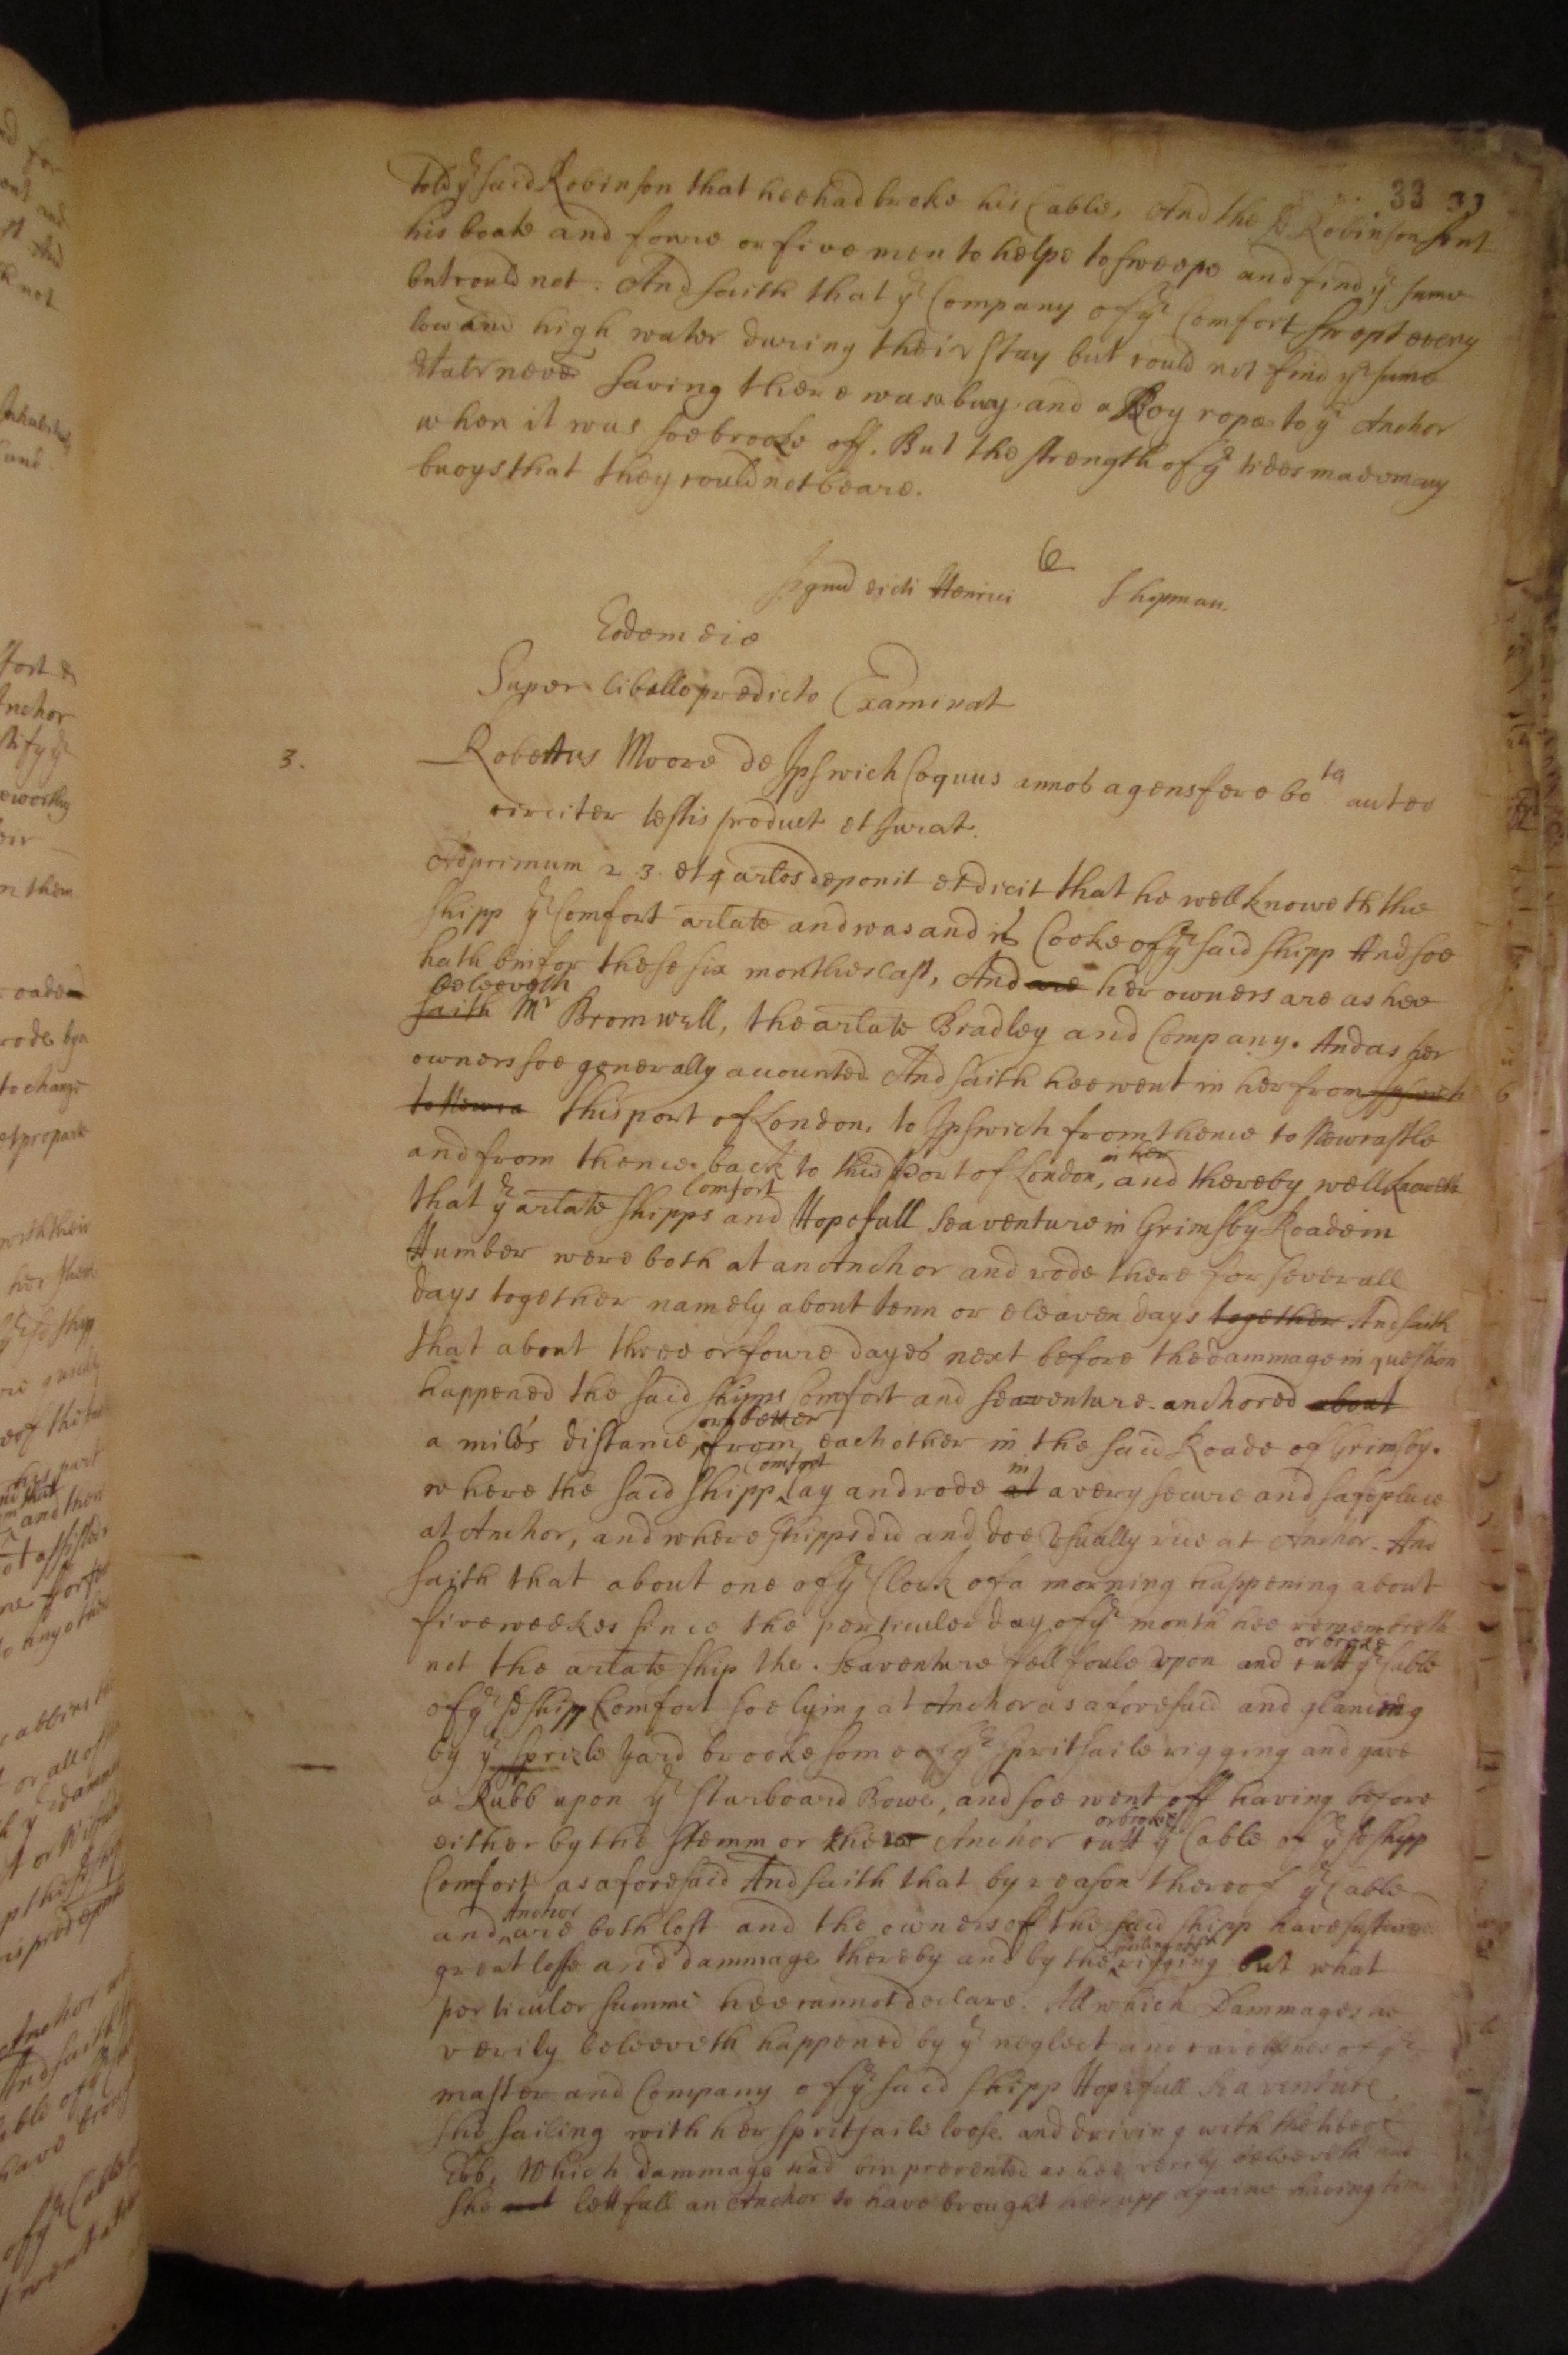 33 33
told ye said Robinson that hee had broke his Cable, And the sd Robinson sent
his boate and foure or five men to helpe to sweepe and find ye same
but could not. And saith that ye Company of ye Comfort swept every
low and high water during their stay but could not find ye same
saving there was a buoy and a Boy rope to ye Anchor
when it was soe brooke off. But the strength of ye tides made many
buoys that they could not beare.
Signu dicti Henrici Shipman.
Eodem die
Super libello predicto Examinat
3.
Robertus Moore de Ipswich Coquus annos agens fere 60 ta aut eo
circiter testis product et jurat.
Ad primum 2 3. et 4 arlos deponit et dicit that he well knoweth the
shipp ye Comfort arlate and was and is Cooke of ye said shipp And soe
hath bin for these six monthes last, And are her owners are as hee
beleeveth
saith Mr Bromwell, the arlate Bradley and Company. And as her
owners soe generally accounted And saith hee went in her from Ipswich
this port of London, to Ipswich from thence to Newcastle
in her
and from thence back to this Port of London, and thereby well knoweth
Comfort
that ye arlate shipps and Hopefull Seaventure in Grimsby Roade in
Humber were both at an Anchor and rode there for severall
days together namely about tenn or eleaven days together And saith
that about three or foure dayes next before the dammage in question
happened the said shipps Comfort and Seaventure anchored about
or better
a miles distance from each other in the said Roade of Grimsby.
Comfort in
where the said shipp lay and rode at a very secure and safe place
at Anchor, and where shipps did and doe Usually ride at Anchor. And
saith that about one of ye Clock of a morning happening about
five weekes since the perticuler day of ye month hee remembreth
or broke
not the arlate ship the Seaventure fell foule upon and cutt ye Cable
of ye sd shipp Comfort soe lying at Anchor as aforesaid and glanceing
by ye Yard brooke some of ye spritsaile rigging and gave
a Rubb upon ye starboard Bowe, and soe went off having before
or broke
either by the stemm or Anchor cutt ye Cable of ye sd shipp
Comfort as aforesaid And saith that by reason thereof ye Cable
Anchor
and are both lost and the owners of the said shipp have
great losse and dammage thereby and by the rigging but what
perticuler summe hee cannot declare. All which Dammages he
verily beleeveth happened by ye neglect and carelesnes of ye
master and Company of ye said shipp Hopefull Seaventure
she sailing with her spritsaile loose and driving with the tide of
Ebb, Which dammage had bin prevented as hee verily beleeveth had
she lett fall an Anchor to have brought her upp againe having time